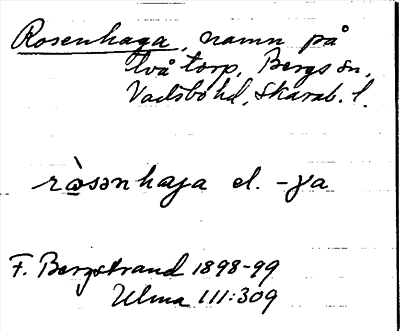 Rosenhaga, namn på
två torp, Bergs sn,
Vadsbo hd, Skarab. l.
rɷ̀sənhaga el. -ɣa
F. Bergstrand 1898-99
Ulma 111:309